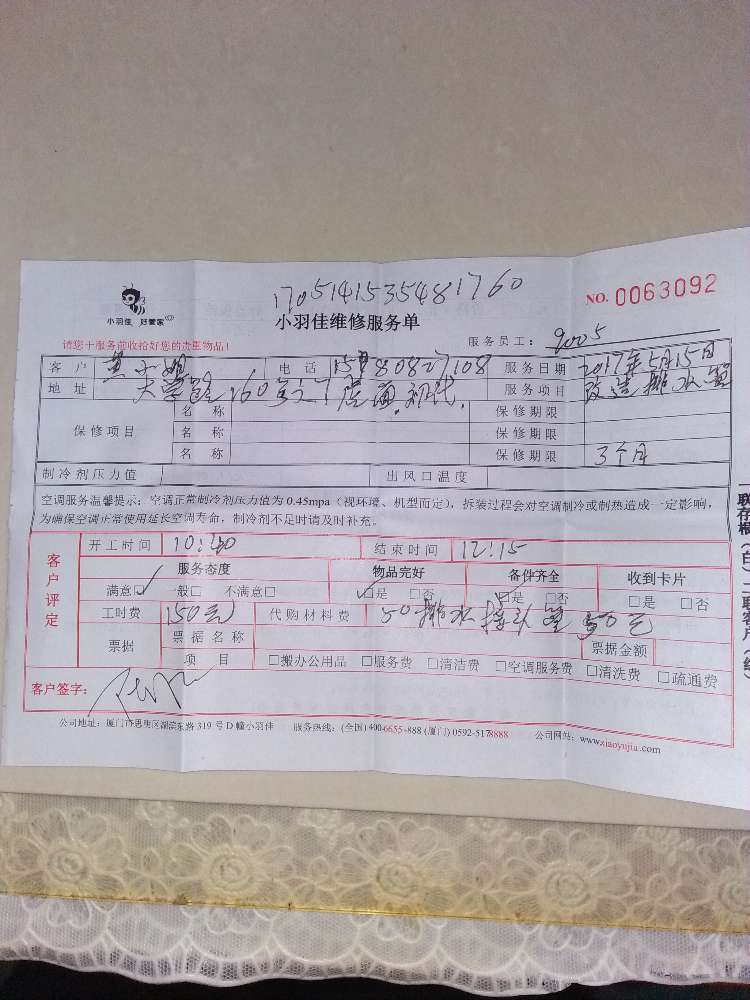 1705141535481760
NO. 0063092
小羽佳 好管家
小羽佳维修服务单
服务员工： 9005
请您于服务前收拾好您的贵重物品！
客户 黄小姐 电话 15980827108 服务日期 2017年5月15日
地址 大学路160号之7 服务项目 改造排水管
保修项目 名称 保修期限
名称 保修期限
名称 保修期限 3个月
制冷剂压力值 出风口温度
空调服务温馨提示：空调正常制冷剂压力值为 0.45mpa（视环境、机型而定），拆装过程会对空调制冷或制热造成一定影响，
为确保空调正常使用延长空调寿命，制冷剂不足时请及时补充。
客户评定
开工时间 10:40 结束时间 12:15
服务态度 物品完好 备件齐全 收到卡片
满意☑ 一般□ 不满意□ ☑是 □否 ☑是 □否 □是 □否
工时费 150元 代购材料费 50排水接头 50元
票据 票据名称 票据金额
项目 □搬办公用品 □服务费 □清洁费 □空调服务费 □清洗费 □疏通费
客户签字：
公司地址：厦门市思明区湖滨东路 319 号 D 幢小羽佳 服务热线：(全国) 400-6655-888 (厦门) 0592-5178888 公司网站：www.xiaoyujia.com
一联存根（白） 二联客户（红）